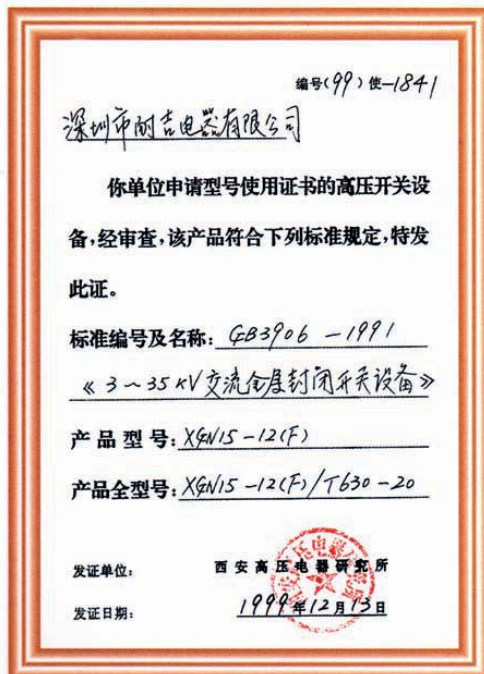 编号(99)使-1841
深圳市耐吉电器有限公司
你单位申请型号使用证书的高压开关设
备,经审查,该产品符合下列标准规定,特发
此证。
标准编号及名称: GB3906-1991
《3~35kV交流金属封闭开关设备》
产品型号: XGN15-12(F)
产品全型号: XGN15-12(F)/T630-20
发证单位: 西安高压电器研究所
发证日期: 1999年12月13日